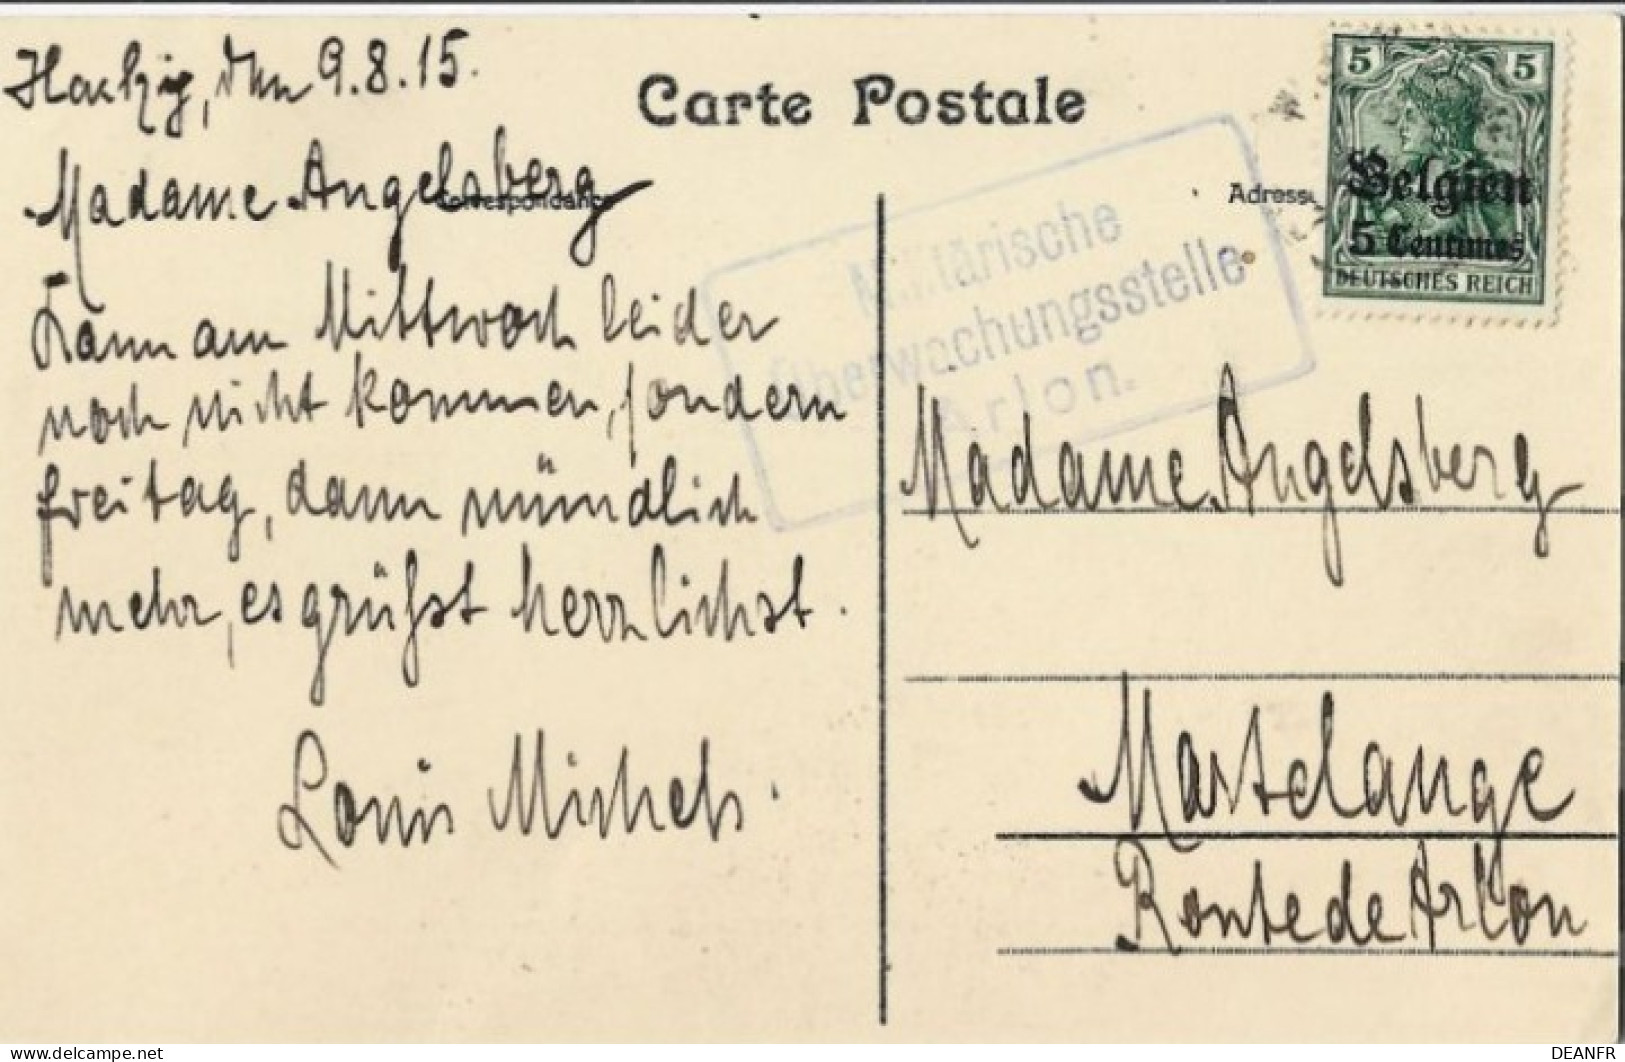 Hachzig, den 9.8.15.
Carte Postale
Madame Angelsberg
Correspondance
Adresse
5 5
Belgien
5 Centimes
DEUTSCHES REICH
Militärische
Überwachungsstelle
Arlon.
Kann am Mittwoch leider
noch nicht kommen, sondern
freitag, dann mündlich
mehr, es grüßst herzlichst.
Louis Michels.
Madame Angelsberg
Martelange
Route de Arlon
delcampe.net
DEANFR